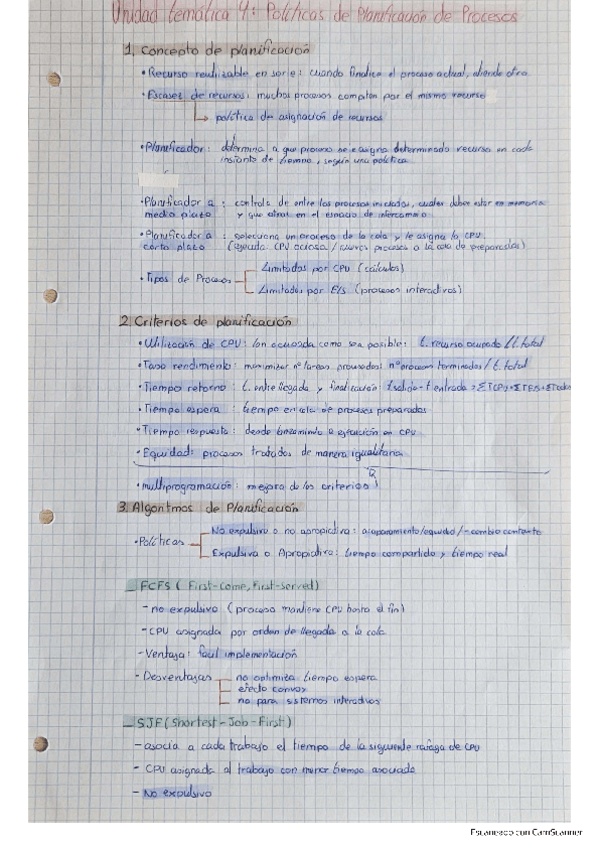 Unidad temática 4: Políticas de Planificación de Procesos
1. Concepto de planificación
• Recurso reutilizable en serie: cuando finalice el proceso actual, atiende otro.
• Escasez de recursos: muchos procesos compiten por el mismo recurso
↳ política de asignación de recursos
• Planificador: determina a que proceso se asigna determinado recurso en cada
instante de tiempo, según una política
• Planificador a : controla de entre los procesos iniciados, cuales deben estar en memoria
medio plazo y que otros en el espacio de intercambio
• Planificador a : selecciona un proceso de la cola y le asigna la CPU
corto plazo (ejecuta CPU ociosa / nuevos procesos a la cola de preparados)
• Tipos de Proceso
Limitados por CPU (cálculos)
Limitados por E/S (procesos interactivos)
2. Criterios de planificación
• Utilización de CPU: tan ocupada como sea posible: t. recurso ocupado / t. total
• Tasa rendimiento: minimizar nº tareas procesadas: nº procesos terminados / t. total
• Tiempo retorno: t. entre llegada y finalización t salida - t entrada =
• Tiempo espera: tiempo en cola de procesos preparados
• Tiempo respuesta: desde lanzamiento a ejecución en CPU
• Equidad: procesos tratados de manera igualitaria
• multiprogramación: mejora de los criterios
3. Algoritmos de Planificación
• Políticas
No expulsiva o no apropiativa: cambio contexto
Expulsiva o Apropiativa: tiempo compartido y tiempo real
_ FCFS (First-Come, First-served)
- no expulsivo (proceso mantiene CPU hasta el fin)
- CPU asignada por orden de llegada a la cola
- Ventaja: facil implementación
- Desventajas
no optimiza tiempo espera
efecto convoy
no para sistemas interactivos
_ SJF (Shortest-Job-First)
- asocia a cada trabajo el tiempo de la siguiente ráfaga de CPU
- CPU asignada al trabajo con menor tiempo asociado
- No expulsivo
Escaneado con CamScanner